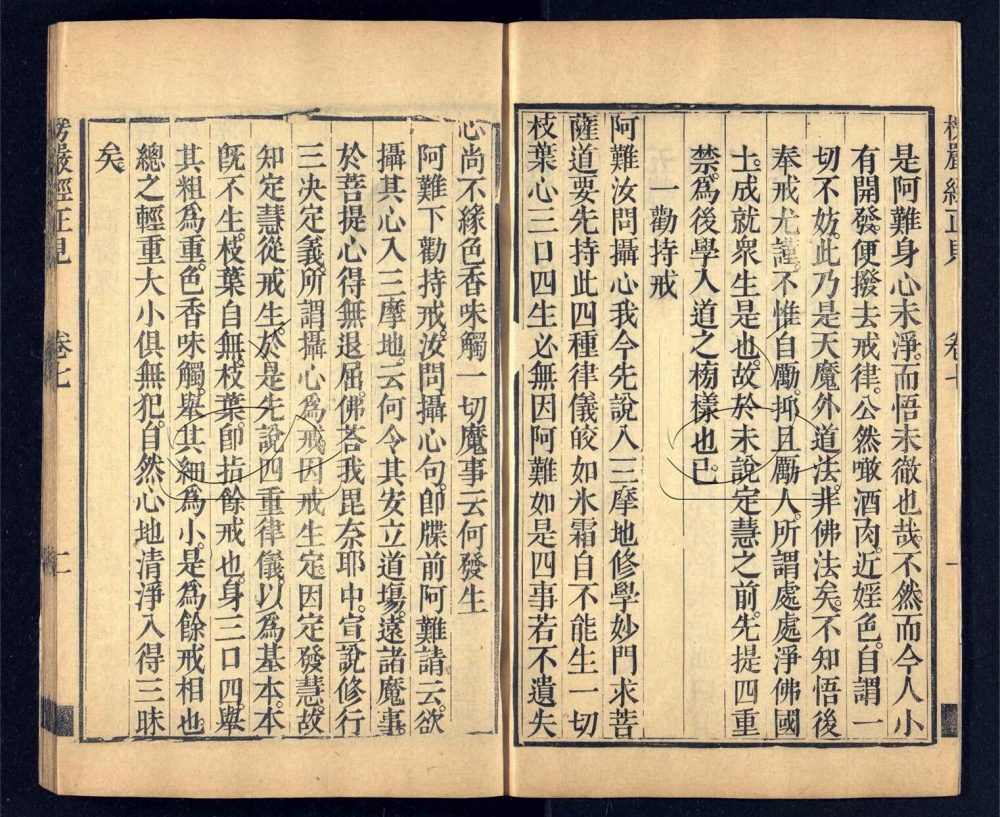 楞嚴經正見 卷七 一
是阿難身心未淨。而悟未徹也哉。不然而今人小
有開發。便撥去戒律。公然噉酒肉。近婬色。自謂一
切不妨。此乃是天魔外道法。非佛法矣。不知悟後
奉戒尤謹。不惟自勵。抑且勵人。所謂處處淨佛國
土。成就衆生是也。故於未說定慧之前。先提四重
禁。爲後學入道之榜樣也已。
一勸持戒
阿難汝問攝心我今先說入三摩地修學妙門求菩
薩道要先持此四種律儀皎如氷霜自不能生一切
枝葉心三口四生必無因阿難如是四事若不遺失
心尚不緣色香味觸一切魔事云何發生
阿難下勸持戒。汝問攝心句。卽牒前阿難請云。欲
攝其心入三摩地。云何令其安立道場。遠諸魔事。
於菩提心得無退屈。佛荅我毘奈耶中。宣說修行
三决定義。所謂攝心爲戒。因戒生定。因定發慧。故
知定慧從戒生。於是先說四重律儀。以爲基本。本
旣不生。枝葉自無。枝葉。卽指餘戒也。身三口四。舉
其粗爲重。色香味觸。舉其細爲小。是爲餘戒相也。
總之輕重大小俱無犯。自然心地清淨入得三昧
矣
楞嚴經正見 卷七 二